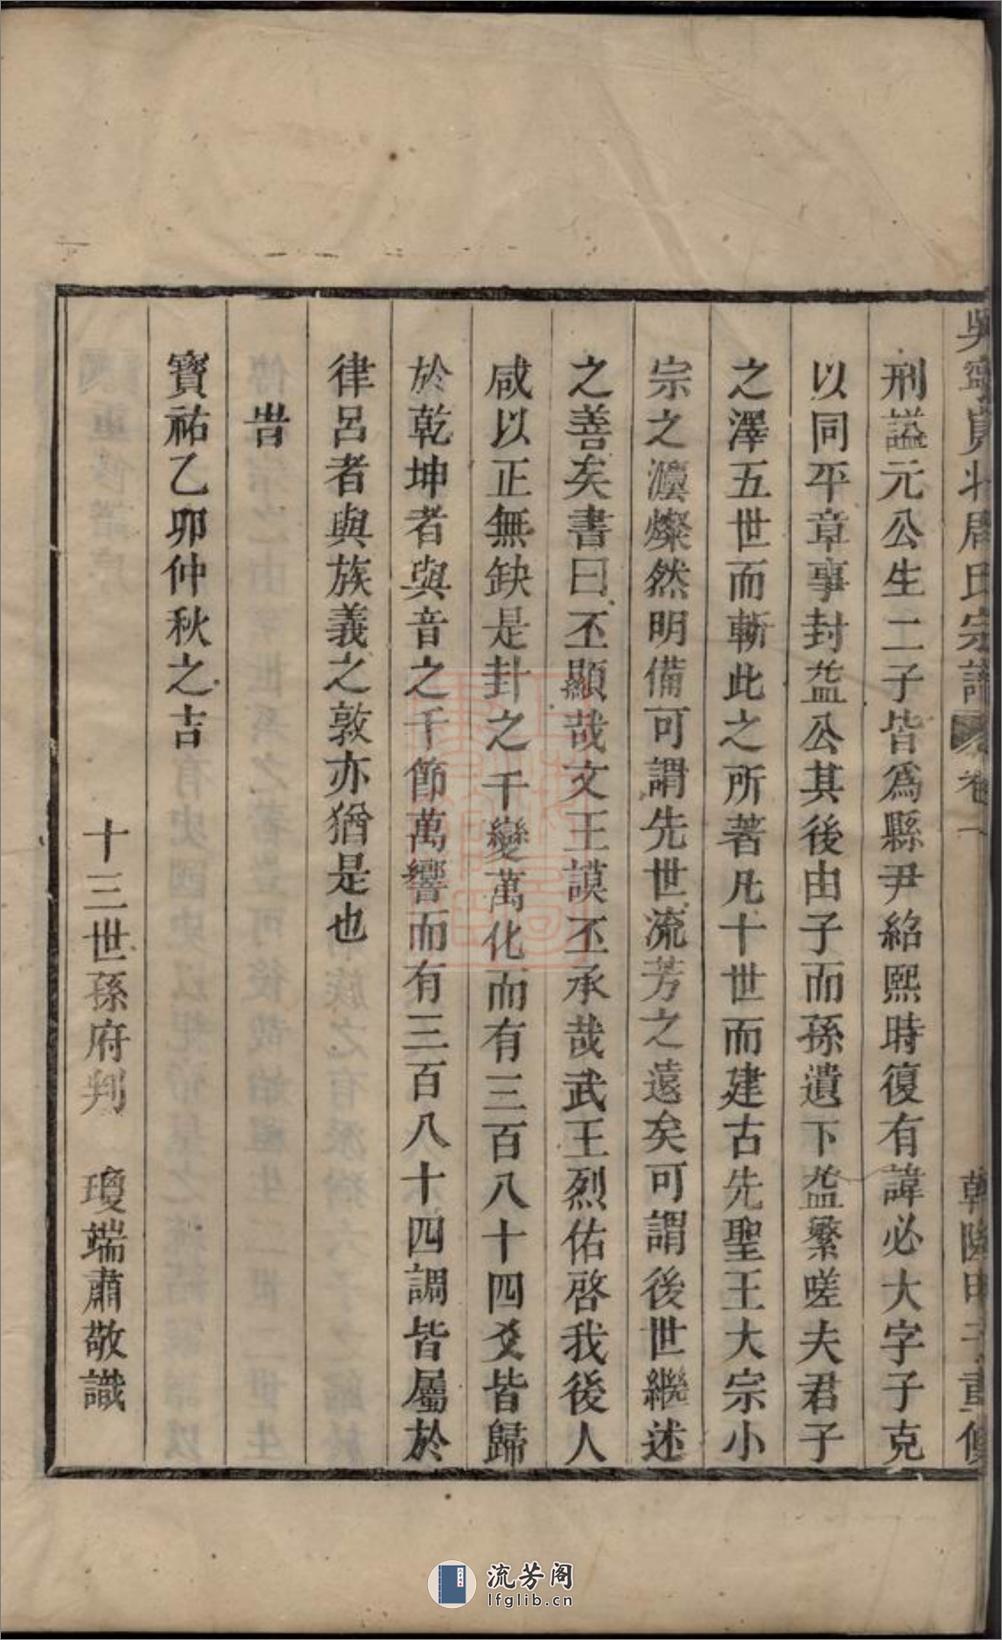 吳寧貢圤周氏宗譜 卷一 乾隆甲子重修
刑諡元公生二子皆爲縣尹紹熙時復有諱必大字子克
以同平章事封益公其後由子而孫遺下益繁嗟夫君子
之澤五世而斬此之所著凡十世而建古先聖王大宗小
宗之灝燦然明備可謂先世流芳之遠矣可謂後世繼述
之善矣書曰丕顯哉文王謨丕承哉武王烈佑啓我後人
咸以正無缺是卦之千變萬化而有三百八十四爻皆歸
於乾坤者與音之千節萬響而有三百八十四調皆屬於
律呂者與族義之敦亦猶是也
旹
寶祐乙卯仲秋之吉
十三世孫府判 瓊端肅敬識
流芳阁
lfglib.cn